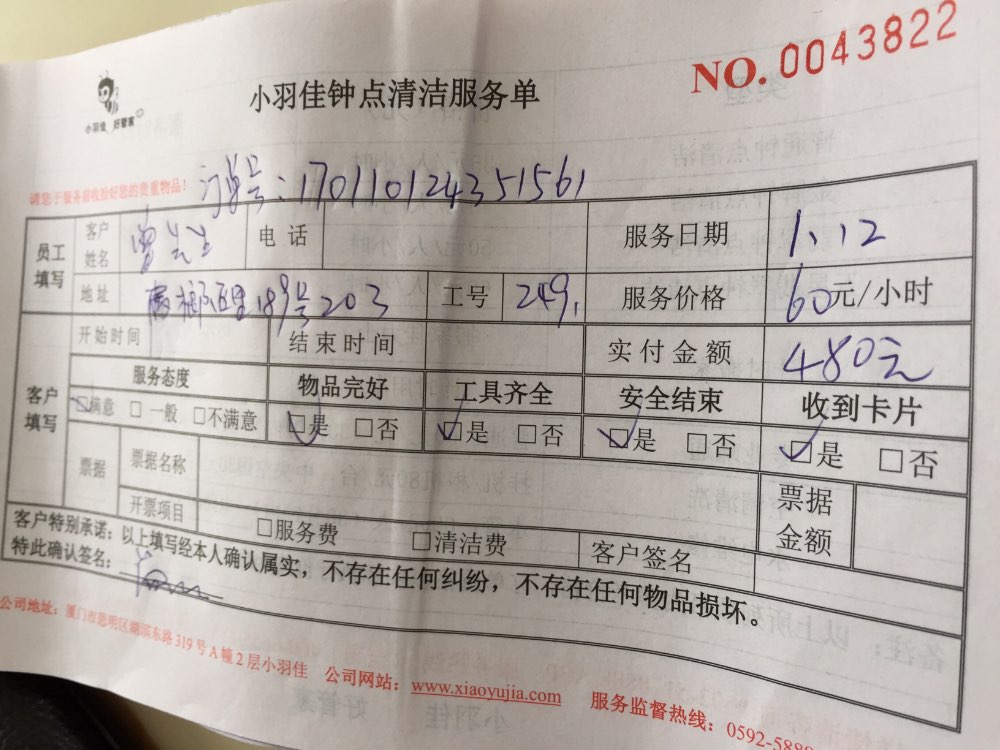 小羽佳 好管家
小羽佳钟点清洁服务单
NO. 0043822
请您于服务前收捡好您的贵重物品!
订单号:170110124351561
员工填写 客户姓名 曾先生 电话 服务日期 1.12
地址 189号203 工号 249 服务价格 60元/小时
客户填写 开始时间 结束时间 实付金额 480元
服务态度 物品完好 工具齐全 安全结束 收到卡片
☑满意 □一般 □不满意 ☑是 □否 ☑是 □否 ☑是 □否 ☑是 □否
票据 票据名称 票据金额
开票项目 □服务费 □清洁费 客户签名
客户特别承诺:以上填写经本人确认属实,不存在任何纠纷,不存在任何物品损坏。
特此确认签名:
公司地址:厦门市思明区湖滨东路319号A幢2层小羽佳 公司网站:www.xiaoyujia.com 服务监督热线:0592-5888